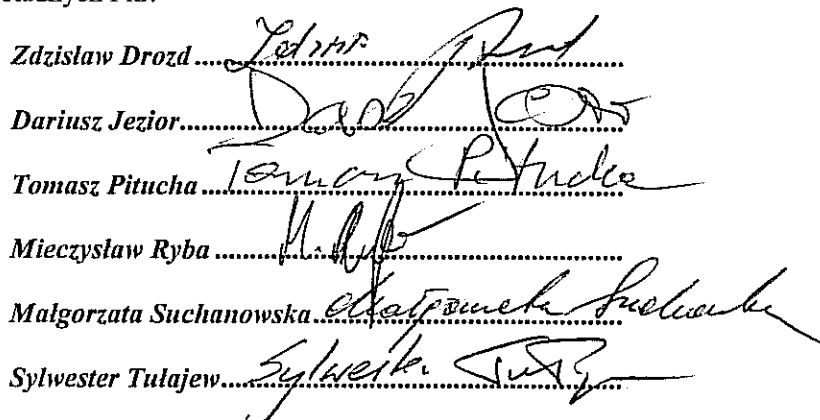 Zdzisław Drozd
Dariusz Jezior
Tomasz Pitucha Tomasz Pitucha
Mieczysław Ryba M. Ryba
Małgorzata Suchanowska Małgorzata
Sylwester Tułajew Sylwester